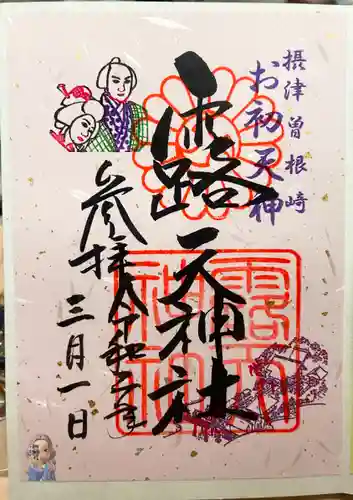 摂津曽根崎
お初天神
露天神社
参拝
令和二年
三月一日